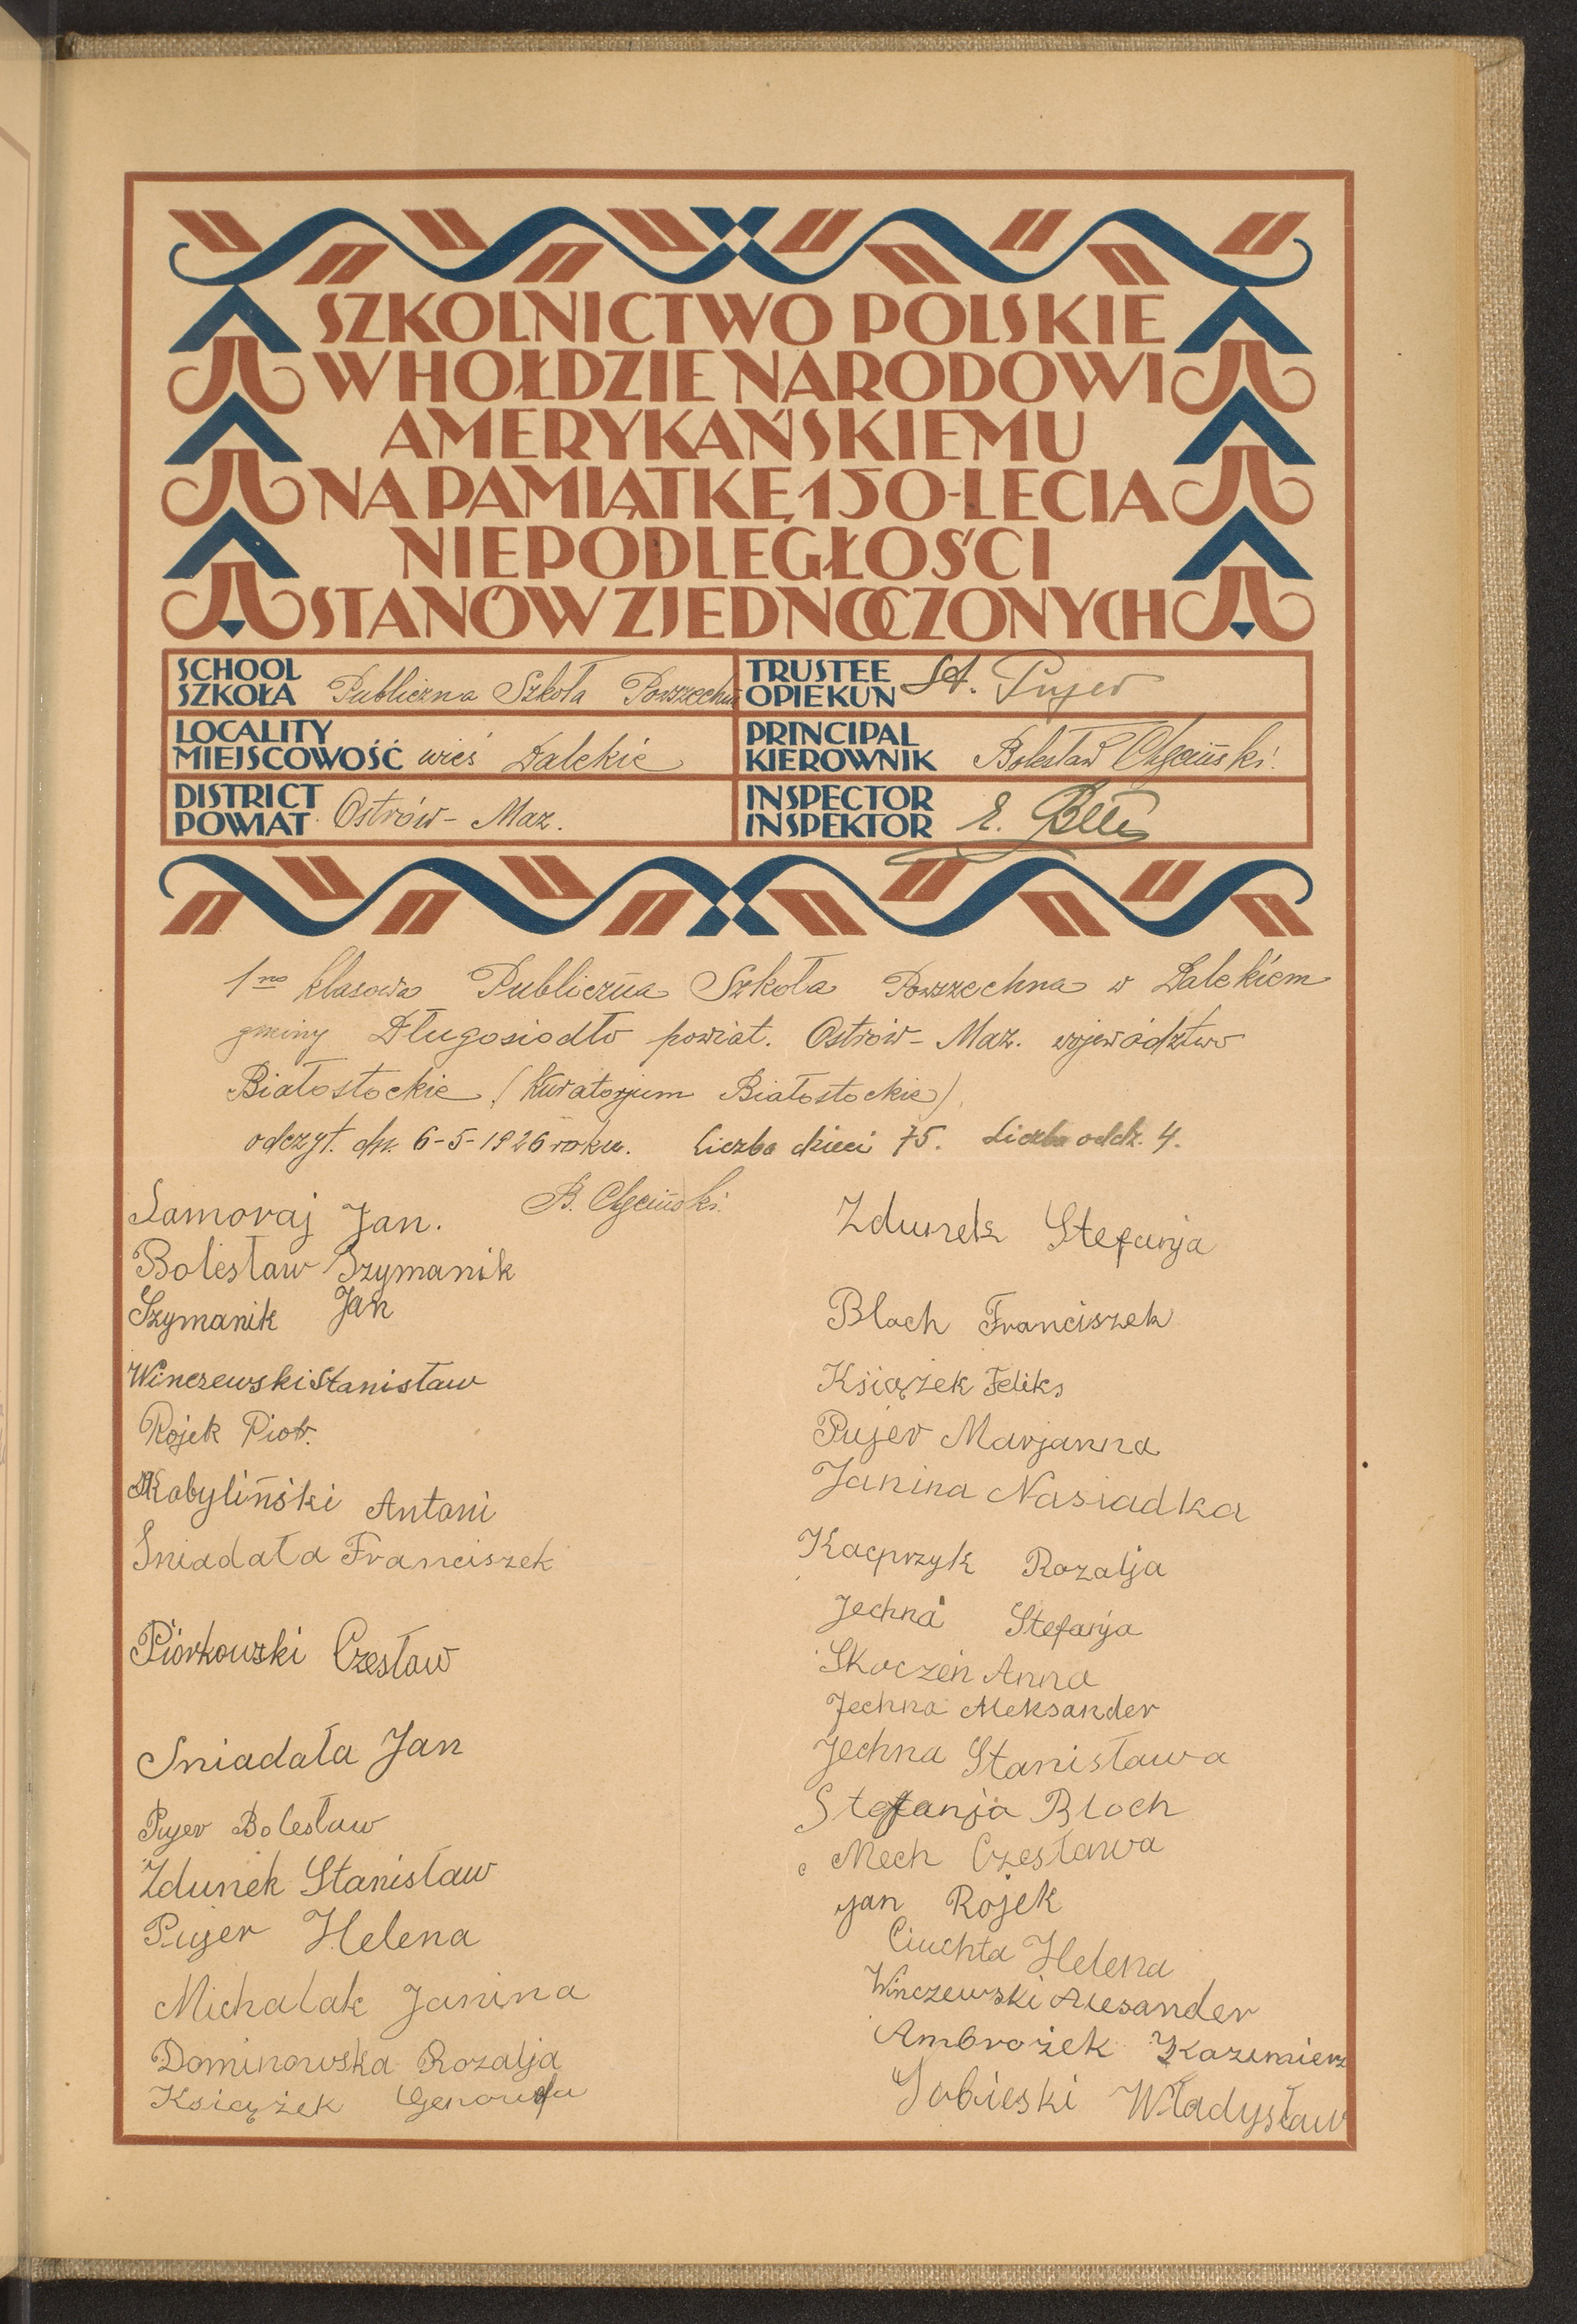 SZKOLNICTWO POLSKIE
W HOŁDZIE NARODOWI
AMERYKAŃSKIEMU
NA PAMIĄTKĘ 150-LECIA
NIEPODLEGŁOŚCI
STANÓW ZJEDNOCZONYCH
SCHOOL
SZKOŁA Publiczna Szkoła Powszechna
TRUSTEE
OPIEKUN St. Pujer
LOCALITY
MIEJSCOWOŚĆ wieś Dalekie
PRINCIPAL
KIEROWNIK Bolesław Chęciński
DISTRICT
POWIAT Ostrów-Maz.
INSPECTOR
INSPEKTOR E.
1no klasowa Publiczna Szkoła Powszechna w Dalekiem
gminy Długosiodło powiat. Ostrów-Maz. województwo
Białostockie (Kuratorjum Białostockie)
odczyt. dn. 6-5-1926 roku. Liczba dzieci 75. Liczba oddz. 4.
B. Chęciński
Samoraj Jan.
Bolesław Szymanik
Szymanik Jan
Winczewski Stanisław
Rojek Piotr.
Kobyliński Antoni
Śniadała Franciszek
Piórkowski Czesław
Sniadała Jan
Pujer Bolesław
Zdunek Stanisław
Pujer Helena
Michalak Janina
Dominowska Rozalja
Książek Genowefa
Zdunek Stefanja
Bloch Franciszek
Książek Feliks
Pujer Marjanna
Janina Nasiadka
Kacprzyk Rozalja
Jechna Stefanja
Skoczeń Anna
Jechna Aleksander
Jechna Stanisława
Stefanja Bloch
Mech Czesława
Jan Rojek
Ciuchta Helena
Winczewski Alesander
Ambrożek Kazimierz
Sobieski Władysław